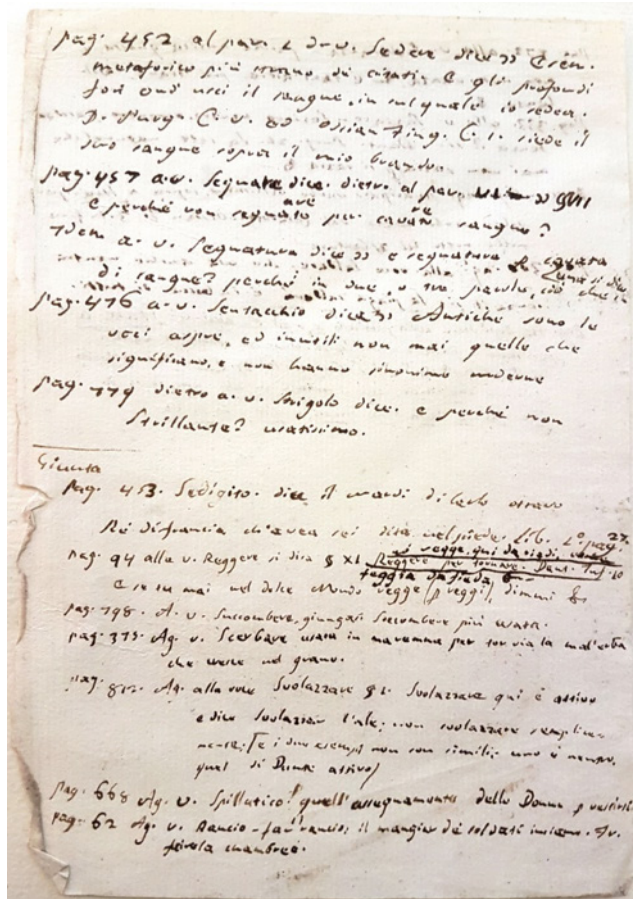 pag. 452 al par. 2 d. v. Sedere dice
metaforico più strano dei citati. E gli profondi
fori ond' uscì il sangue, in sul quale io sedea.
D. Purg. C. v. ed Ossian Fing. C. 1. siede il
suo sangue sopra il mio brando.
pag. 457 a. v. Segnare dice. dietro al par.
e perchè non segnare per cavare sangue?
Idem a. v. Segnatura dice e segnatura
di sangue? perchè in due, o tre parole, ciò che in una si dice
pag. 476 a. v. Sentacchio dice Antiche sono le
voci aspre, ed inutili non mai quelle che
significano, e non hanno sinonimo moderne
pag. 779 dietro a. v. Strigolo dice. e perchè non
Strillante? usatissimo.
Giunta
pag. 453. Sedigito. dice il
Re di francia ch'avea sei dita nel piede. Lib. 2º. pag. 27.
pag. 94 alla v. Reggere si dica § XI. Reggere per tornare. Dant. Inf. 10
si regge, qui da riedi, come
feggia da fieda
E se tu mai nel dolce Mondo regge (p reggi), dimmi &
pag. 798. A. v. Succombere, giungasi Soccombere più usata.
pag. 375. Ag. v. Scerbare usata in maremma per tor via la mal'erba
che cresce nel grano.
pag. 872. Ag. alla voce Svolazzare § 2. Svolazzare qui è attivo
e dice svolazzar l'ale; non svolazzare semplice-
mente; (e i due esempj non son simili; uno è neutro,
quel di Dante attivo)
pag. 668 Ag. v. Spillatico! quell'assegnamento delle Donne p vestirsi.
pag. 62 Ag. v. Rancio - far rancio; il mangiar de' soldati insieme. Fr.
chambrée.